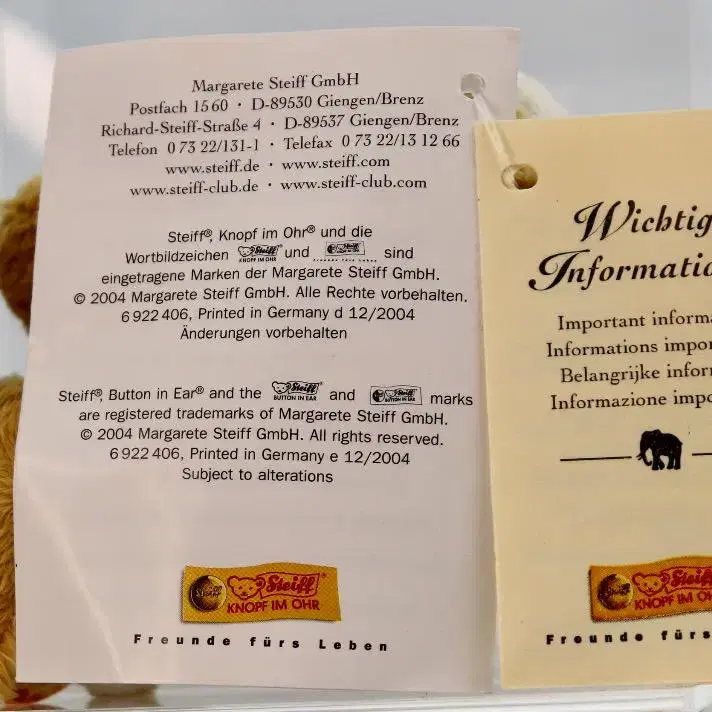 Margarete Steiff GmbH
Postfach 15 60 · D-89530 Giengen/Brenz
Richard-Steiff-Straße 4 · D-89537 Giengen/Brenz
Telefon 0 73 22/131-1 · Telefax 0 73 22/13 12 66
www.steiff.de · www.steiff.com
www.steiff-club.de · www.steiff-club.com
Steiff®, Knopf im Ohr® und die
Wortbildzeichen Steiff KNOPF IM OHR und Steiff sind
eingetragene Marken der Margarete Steiff GmbH.
© 2004 Margarete Steiff GmbH. Alle Rechte vorbehalten.
6 922 406, Printed in Germany d 12/2004
Änderungen vorbehalten
Steiff®, Button in Ear® and the Steiff BUTTON IN EAR and Steiff BUTTON IN EAR marks
are registered trademarks of Margarete Steiff GmbH.
© 2004 Margarete Steiff GmbH. All rights reserved.
6 922 406, Printed in Germany e 12/2004
Subject to alterations
Steiff®
KNOPF IM OHR
Freunde fürs Leben
Wichtig
Informatio
Important informa
Informations impor
Belangrijke infor
Informazione impo
Steiff
KNOPF IM OH
Freunde fürs